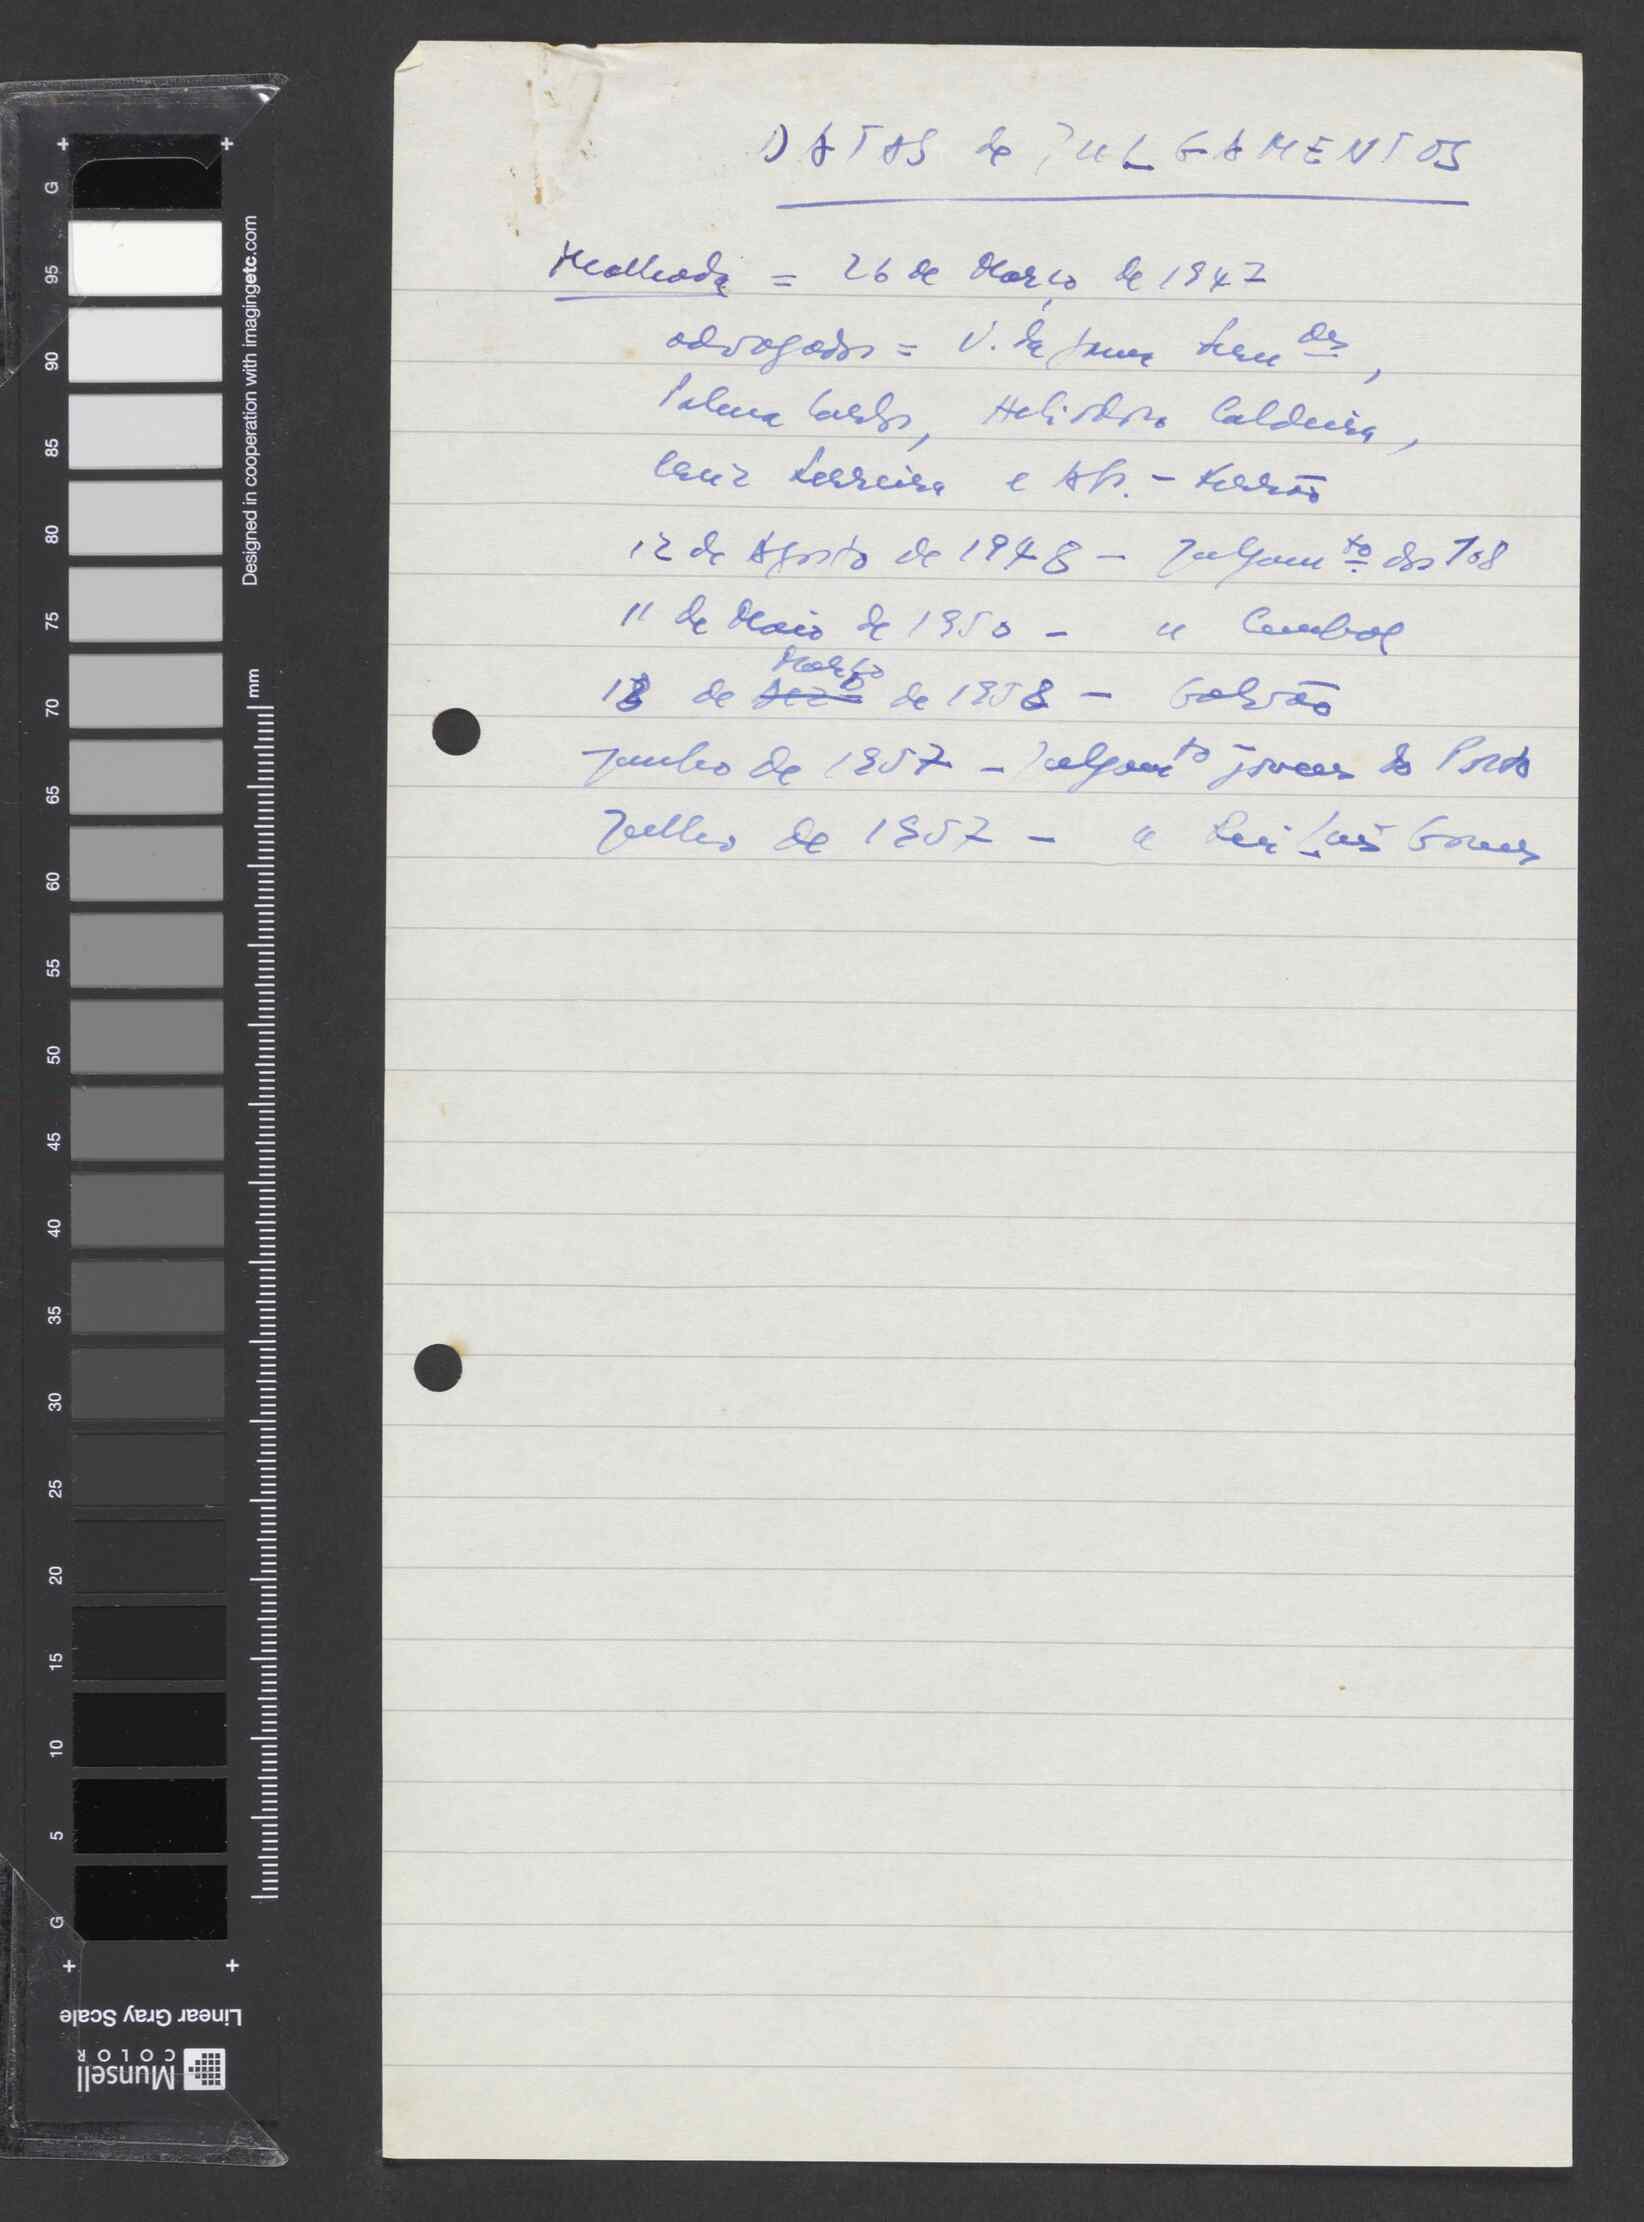 DATAS de JULGAMENTOS
Mealhada = 26 de Março de 1947
advogados = V. da Gama Fern des,
Palma Carlos, Heliodoro Caldeira,
Cruz Ferreira e Abr. - Ferrão
12 de Agosto de 1948 - Julgam to dos 108
11 de Maio de 1950 - " Cunhal
Março
18 de de 1958 - Galvão
Junho de 1957 - Julgam to jovens do Porto
Julho de 1957 - " Rui Luís Gomes
G
95
90
85
80
75
70
65
60
55
50
45
40
35
30
25
20
15
10
5
G
Designed in cooperation with imagingetc.com
mm
Linear Gray Scale
Munsell
COLOR